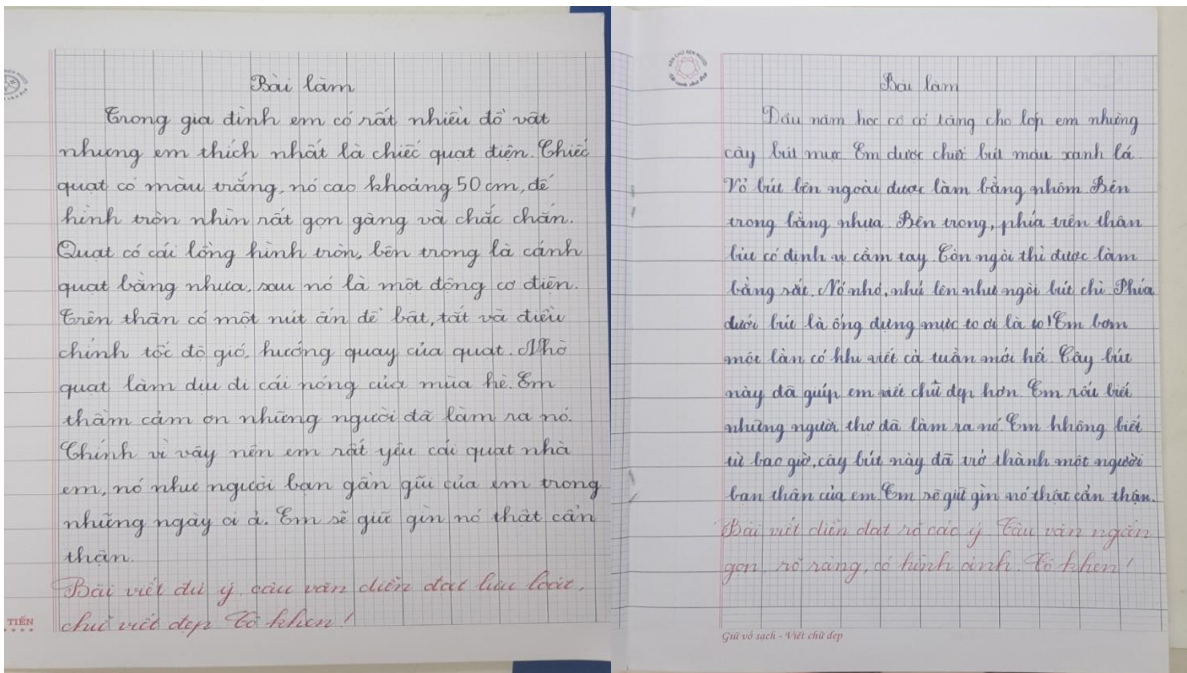 Bài làm
Trong gia đình em có rất nhiều đồ vật
nhưng em thích nhất là chiếc quạt điện. Chiếc
quạt có màu trắng, nó cao khoảng 50 cm, đế
hình tròn nhìn rất gọn gàng và chắc chắn.
Quạt có cái lồng hình tròn, bên trong là cánh
quạt bằng nhựa, sau nó là một động cơ điện.
Trên thân có một nút ấn để bật, tắt và điều
chỉnh tốc độ gió, hướng quay của quạt. Nhờ
quạt làm dịu đi cái nóng của mùa hè. Em
thầm cảm ơn những người đã làm ra nó.
Chính vì vậy nên em rất yêu cái quạt nhà
em, nó như người bạn gần gũi của em trong
những ngày oi ả. Em sẽ giữ gìn nó thật cẩn
thận.
Bài viết đủ ý, câu văn diễn đạt lưu loát,
chữ viết đẹp. Cô khen!
TIẾN
Bài làm
Đầu năm học cô có tặng cho lớp em những
cây bút mực. Em được chiếc bút màu xanh lá.
Vỏ bút bên ngoài được làm bằng nhôm. Bên
trong bằng nhựa. Bên trong, phía trên thân
bút có định vị cầm tay. Còn ngòi thì được làm
bằng sắt. Nó nhỏ, nhú lên như ngòi bút chì. Phía
dưới bút là ống đựng mực to ơi là to! Em bơm
một lần có khi viết cả tuần mới hết. Cây bút
này đã giúp em viết chữ đẹp hơn. Em rất biết
những người thợ đã làm ra nó. Em không biết
từ bao giờ, cây bút này đã trở thành một người
bạn thân của em. Em sẽ giữ gìn nó thật cẩn thận.
Bài viết diễn đạt rõ các ý. Câu văn ngắn
gọn, rõ ràng, có hình ảnh. Cô khen!
Giữ vở sạch - Viết chữ đẹp